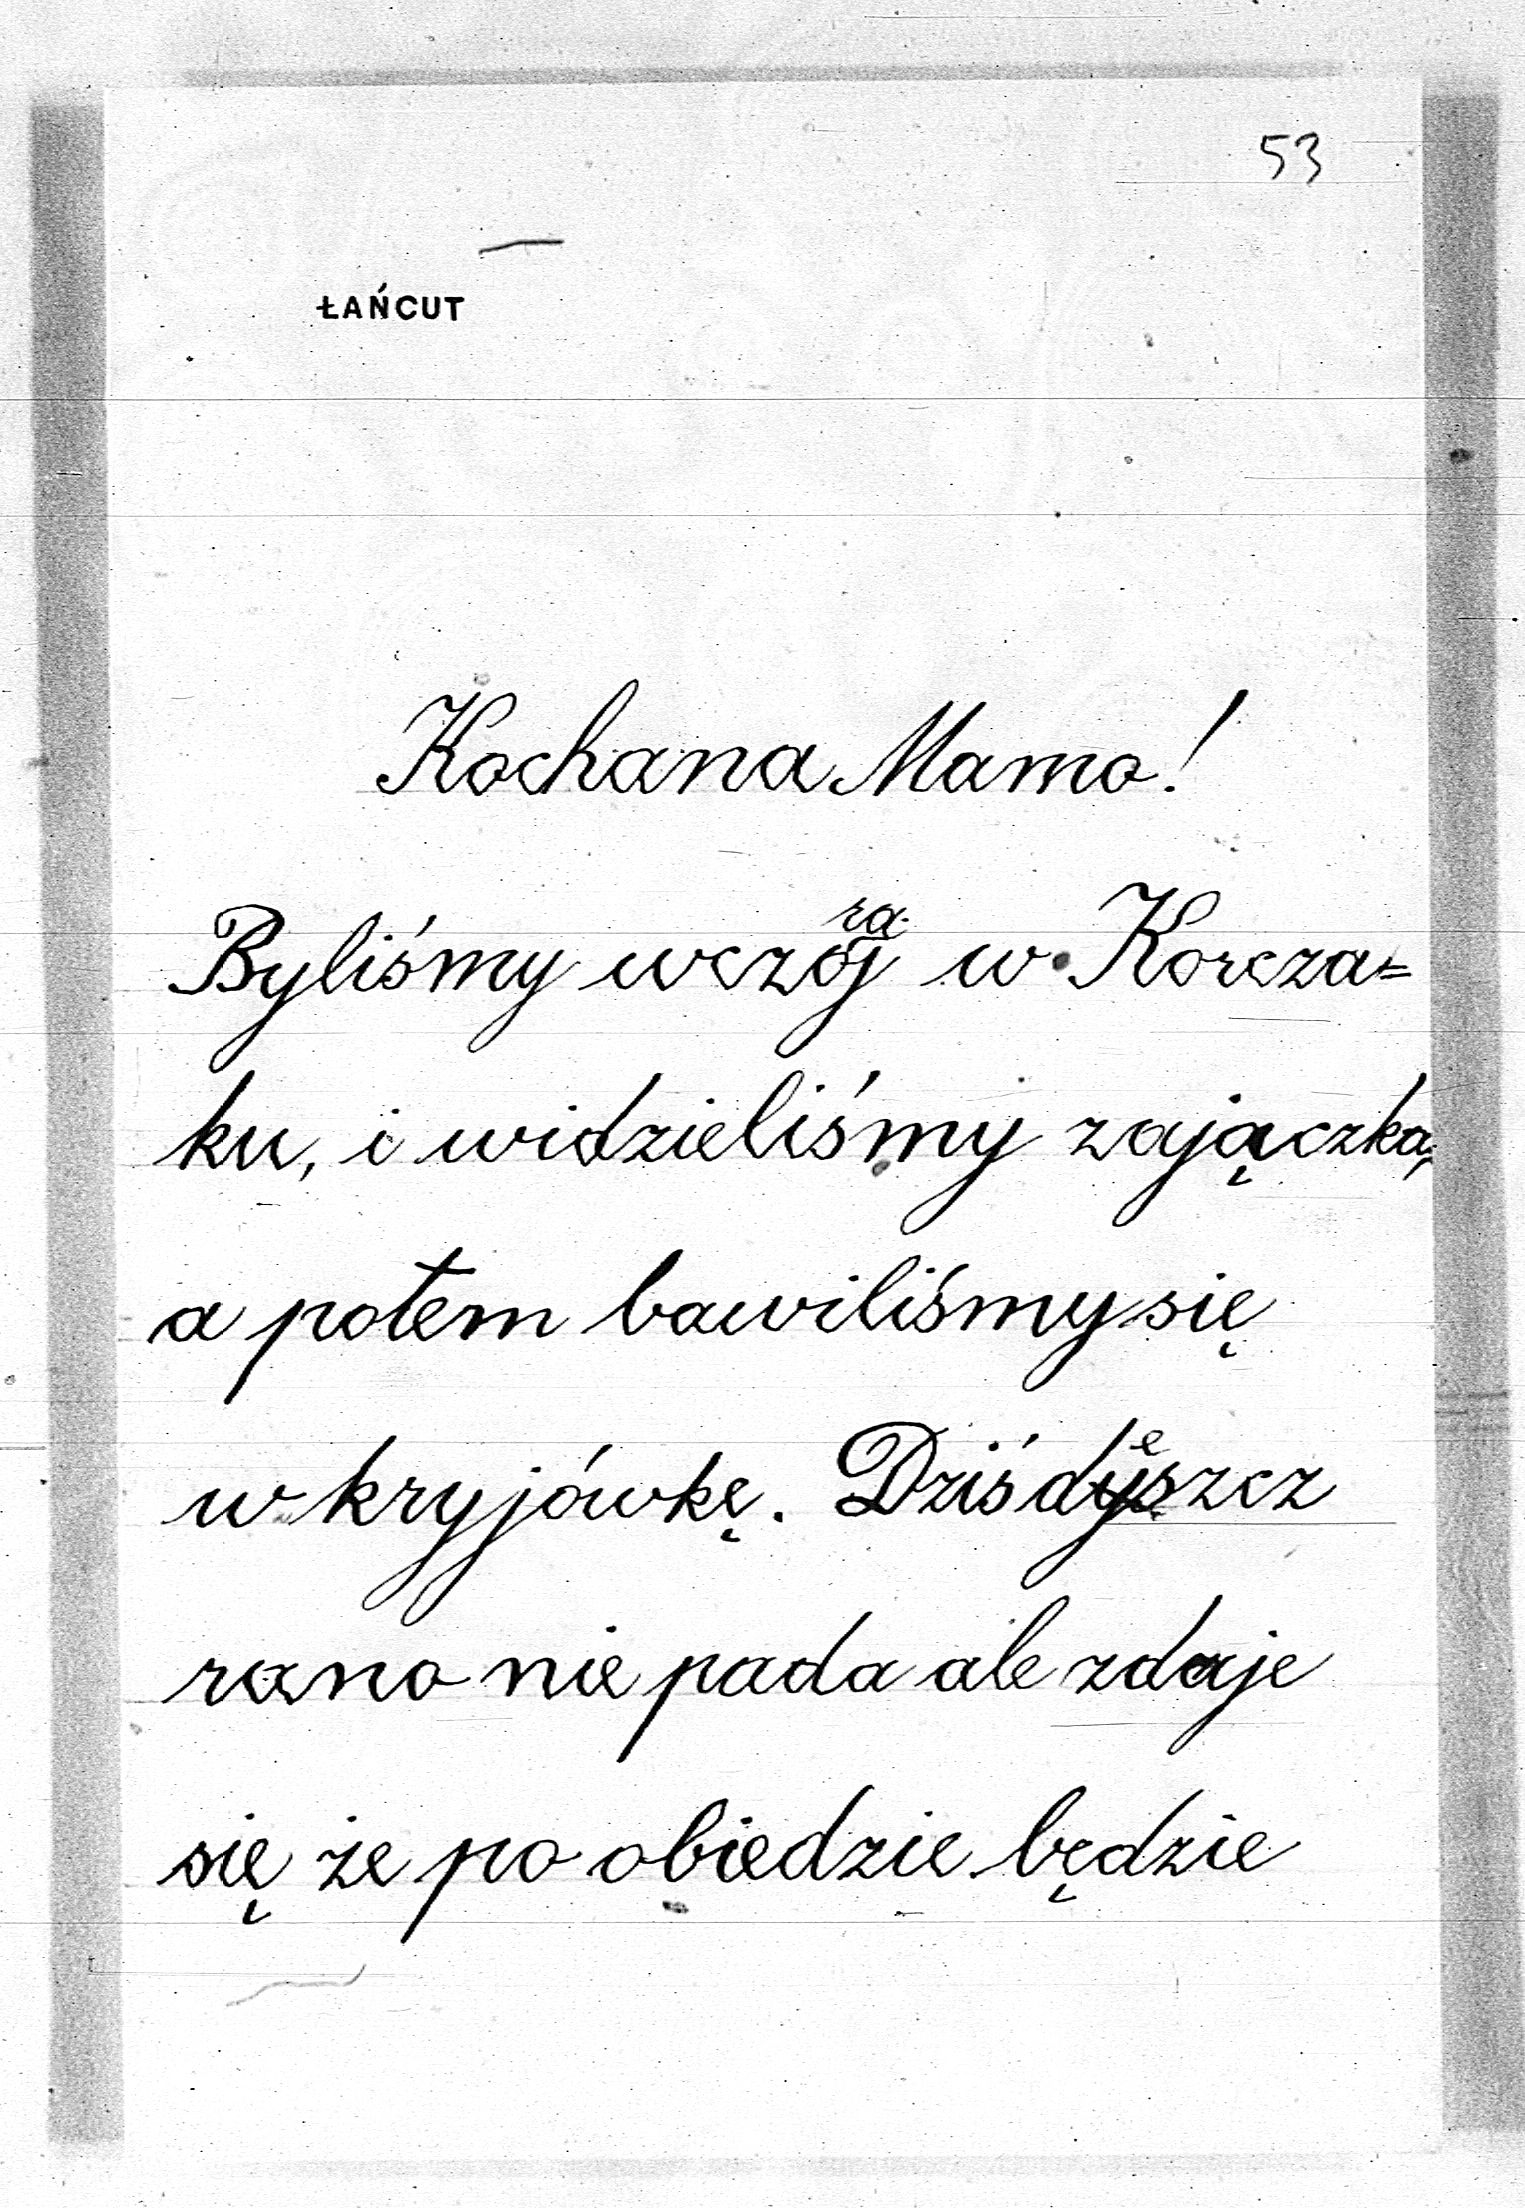 53
ŁAŃCUT
Kochana Mamo!
Byliśmy wczoraj w Korcza=
ku, i widzieliśmy zajączka,
a potem bawiliśmy się
w kryjówkę. Dziś deszcz
rano nie pada ale zdaje
się że po obiedzie będzie